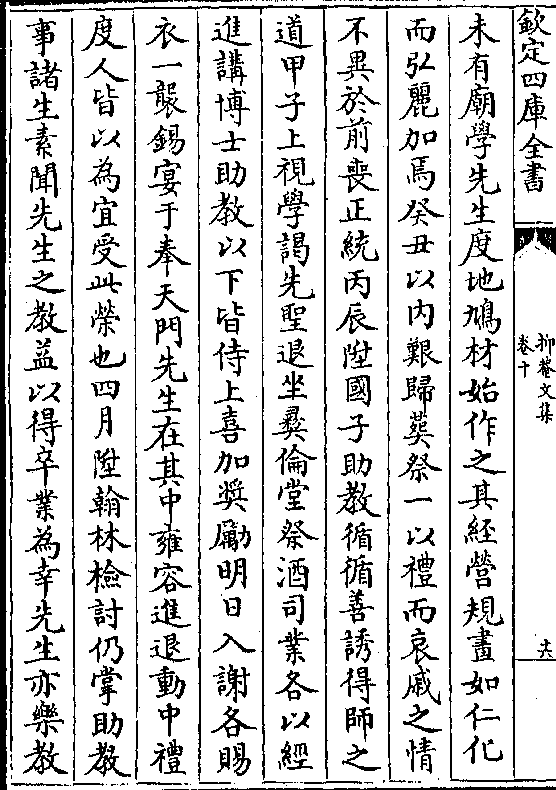 欽定四庫全書
抑菴文集
卷十
六
未有廟學先生度地鳩材始作之其經營規畫如仁化
而弘麗加焉癸丑以内艱歸葬祭一以禮而哀戚之情
不異於前喪正統丙辰陞國子助教循循善誘得師之
道甲子上視學謁先聖退坐彛倫堂祭酒司業各以經
進講博士助教以下皆侍上喜加奬勵明日入謝各賜
衣一襲錫宴于奉天門先生在其中雍容進退動中禮
度人皆以為宜受此榮也四月陞翰林檢討仍掌助教
事諸生素聞先生之教益以得卒業為幸先生亦樂教